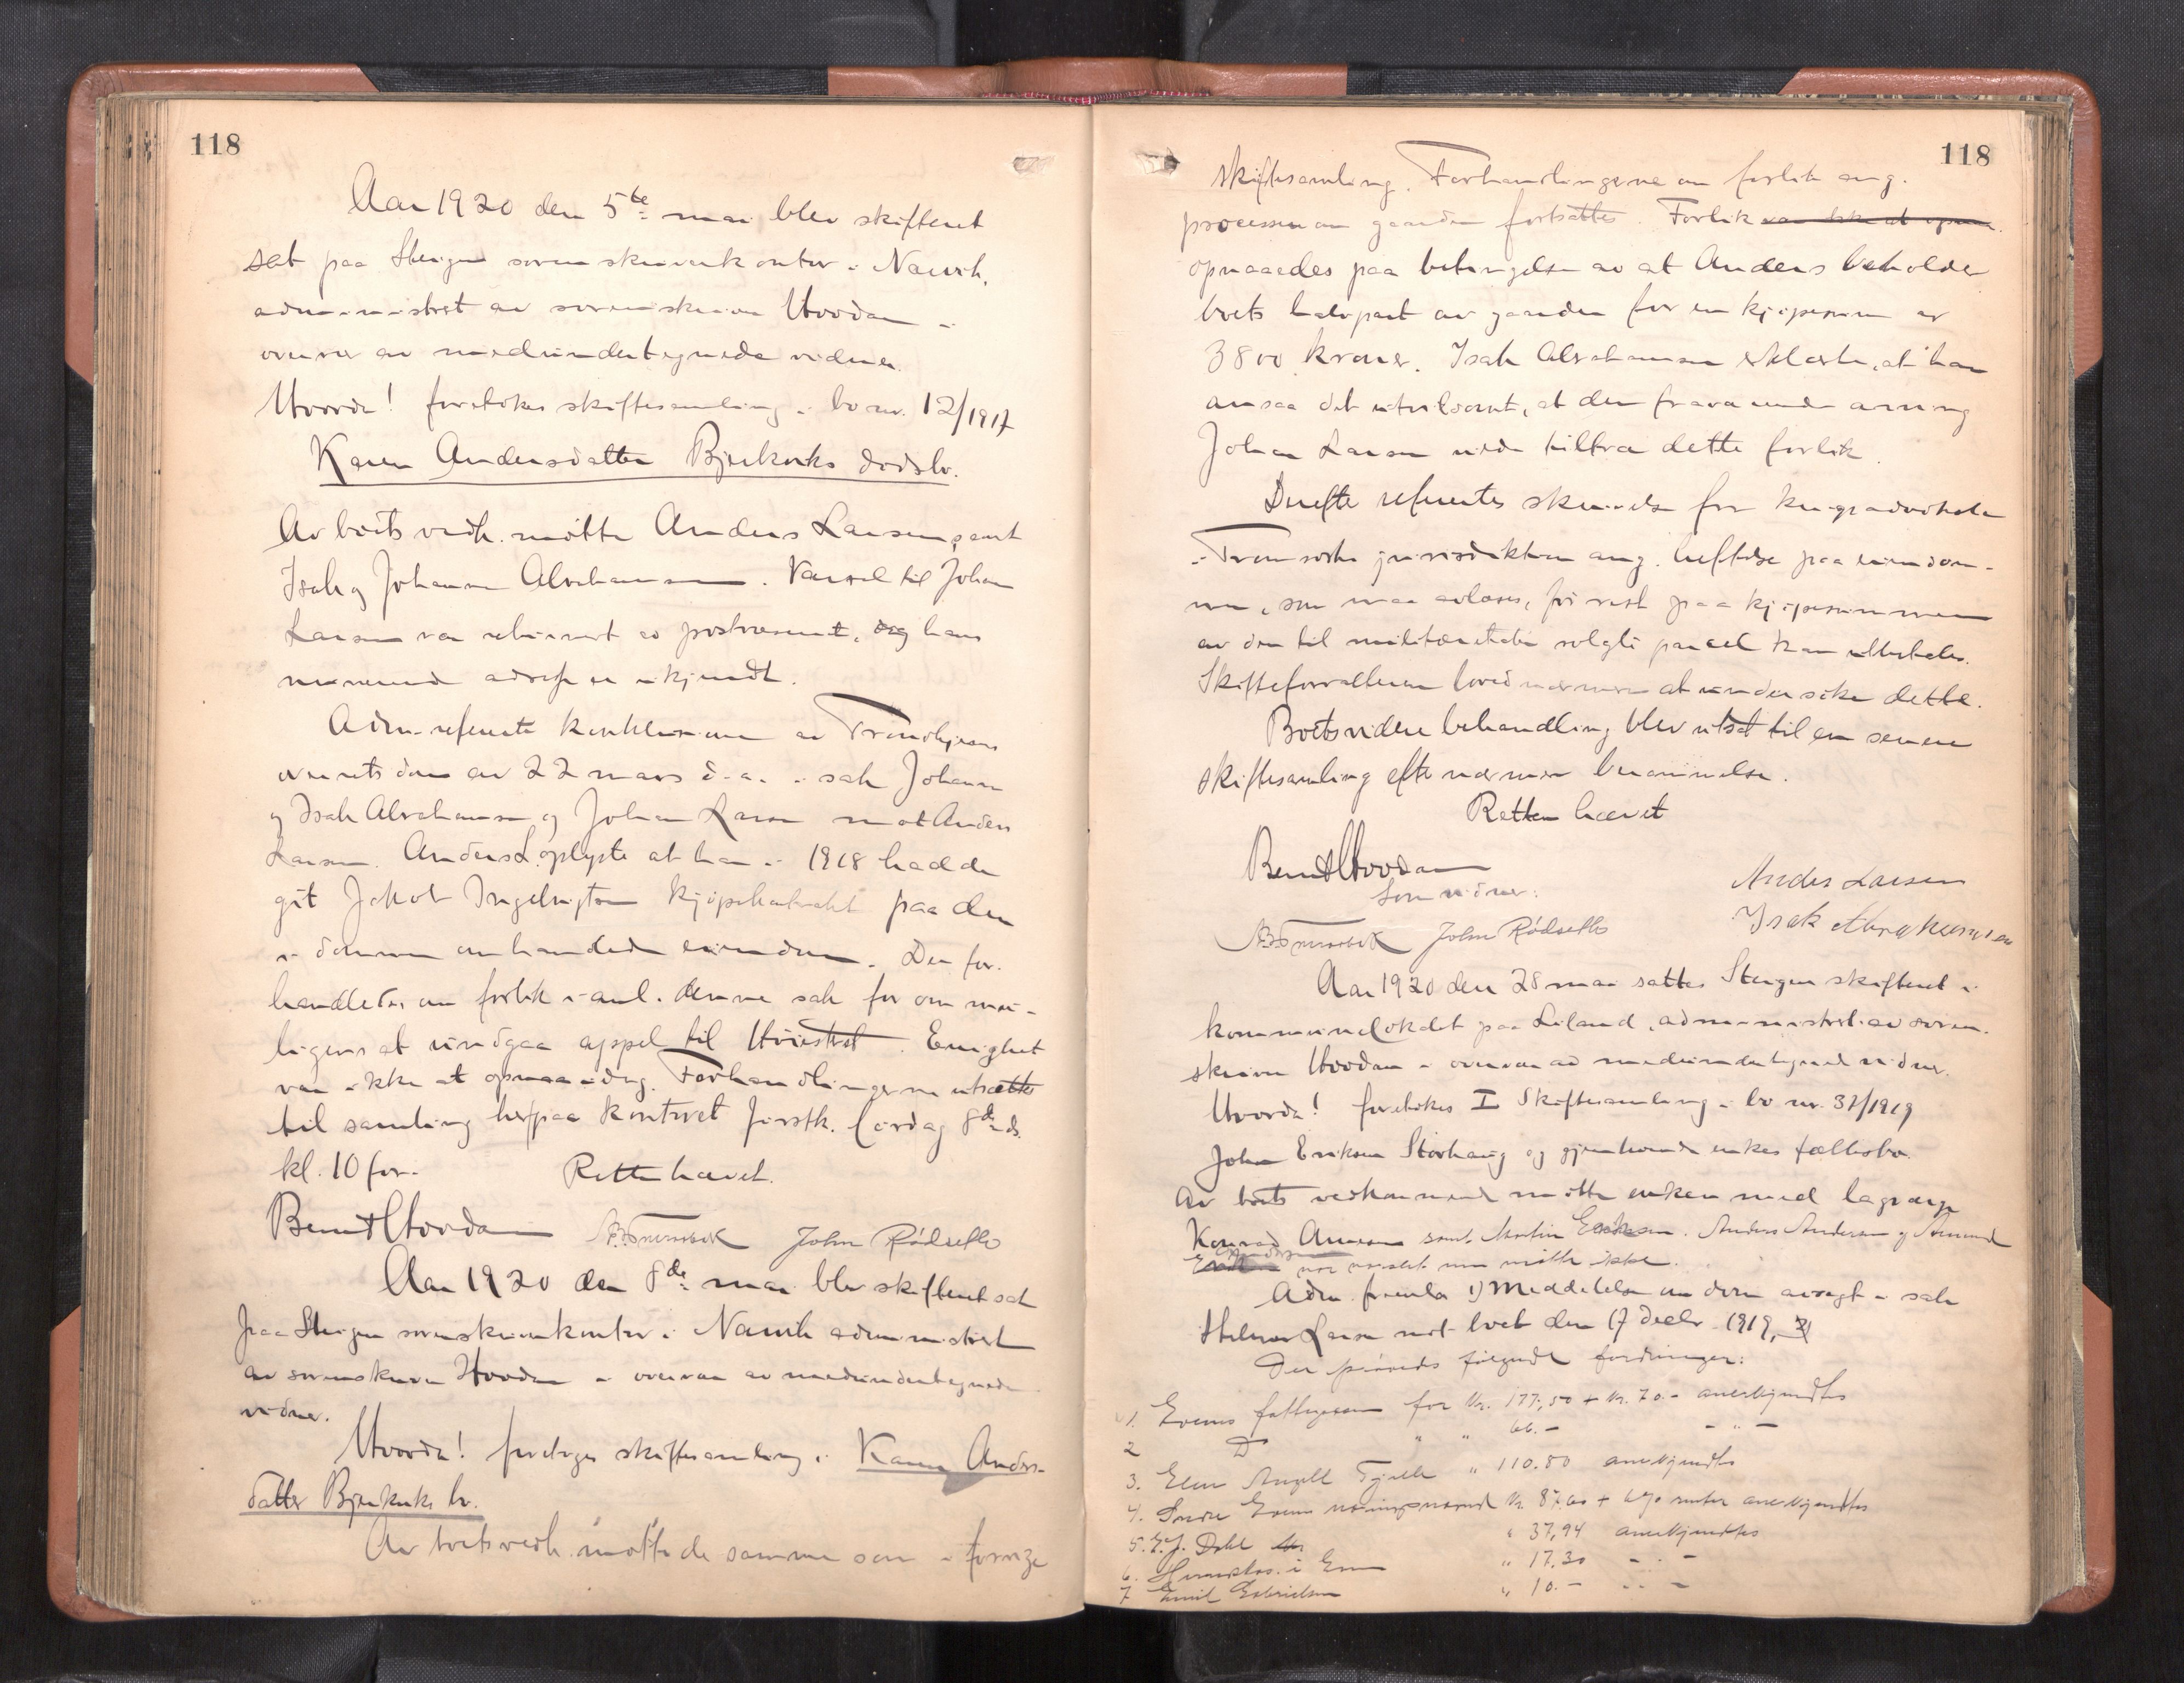 118
Aar 1920 den 5te mai blev skifteret
sat paa Steigen sorenskriverkontor i Narvik,
administrert av sorenskriver Hovdan i
overvær av medundertegnede vidner.
Hvorda! foretokes skiftesamling i bo nr. 12/1917
Karen Andersdatter Bjerkviks dødsbo.
Av boets vedk. møtte Anders Larsen, samt
Isak og Johanna Abrahamsen. Varsel til Johan
Larsen var returnert av postvæsenet, og hans
nuværende adresse er ukjendt.
Adm. refererte konklusionen av Trondhjems
overrets dom av 22 mars d.a. i sak Johanna
og Isak Abrahamsen og Johan Larsen mot Anders
Larsen. Anders L. oplyste at han i 1918 hadde
git Jakob Ingebrigtsen kjøpekontrakt paa den
i dommen omhandlede eiendom. Der for-
handledes om forlik i anl. denne sak for om mu-
ligens at undgaa appel til Høiesteret. Enighet
var ikke at opnaa idag. Forhandlingerne utsættes
til samling her paa kontoret førstk. lørdag 8de ds.
kl. 10 for.
Retten hævet.
Bernt Hovdan John Rødseth
Aar 1920 den 8de mai blev skifteret sat
paa Steigen sorenskriverkontor i Narvik administrert
av sorenskriver Hovdan i overvær av medundertegnede
vidner.
Hvorda! foretoges skiftesamling i Karen Anders-
datter Bjerkviks bo.
Av boets vedk. møtte de samme som i forrige
118
skiftesamling. Forhandlingerne om forlik ang.
processen om gaarden fortsattes. Forlik var ikke at opnaa
opnaaedes paa betingelse av at Anders beholder
boets halvpart av gaarden for en kjøpesum av
3800 kroner. Isak Abrahamsen erklærte, at han
ansaa det utvilsomt, at den fraværende arving
Johan Larsen vilde tiltræ dette forlik.
Derefter refertes skrivelse fra krigsadvokaten
i Tromsøske jurisdiktion ang. heftelse paa eiendom-
men, som maa avløses, før rest paa kjøpesummen
av den til militæretaten solgte parcel kan utbetales.
Skifteforvalteren lovet nærmere at undersøke dette.
Boets videre behandling blev utsat til en senere
skiftesamling efter nærmere berammelse.
Retten hævet
Bernt Hovdan
Som vidner:
John Rødseth
Anders Larsen
Isak Abrahamsen
Aar 1920 den 28 mai sattes Steigen skifteret i
kommunelokalet paa Liland, administrert av soren-
skriver Hovdan i overvær av medundertegnede vidner.
Hvorda! foretokes I Skiftesamling i bo nr. 31/1919
Johan Eriksen Storhaug og gjenlevende enkes fællesbo.
Av boets vedkommende møtte enken med lagværge
Konrad samt Martin Eriksen. Anders Andersen og Amund
Andersen var varslet men møtte ikke.
Adm. fremla 1) Meddelelse om dom avsagt i sak
Hilmar Larsen mot boet den 17 decbr. 1919, 2)
Der prøvedes følgende fordringer:
1. Evenes fattigvæsen for kr. 177,50 + kr. 70.- anerkjendtes
2 D " " 66.- - " -
3. Elen Angell " 110.80 anerkjendtes
4. Indre Evenes kr. 87.60 + 6% renter anerkjendtes
5. E.J. Dahl " 37,94 anerkjendtes
6. i Evenes " 17.30 - " -
7 Emil Gabrielsen " 10.- - " -